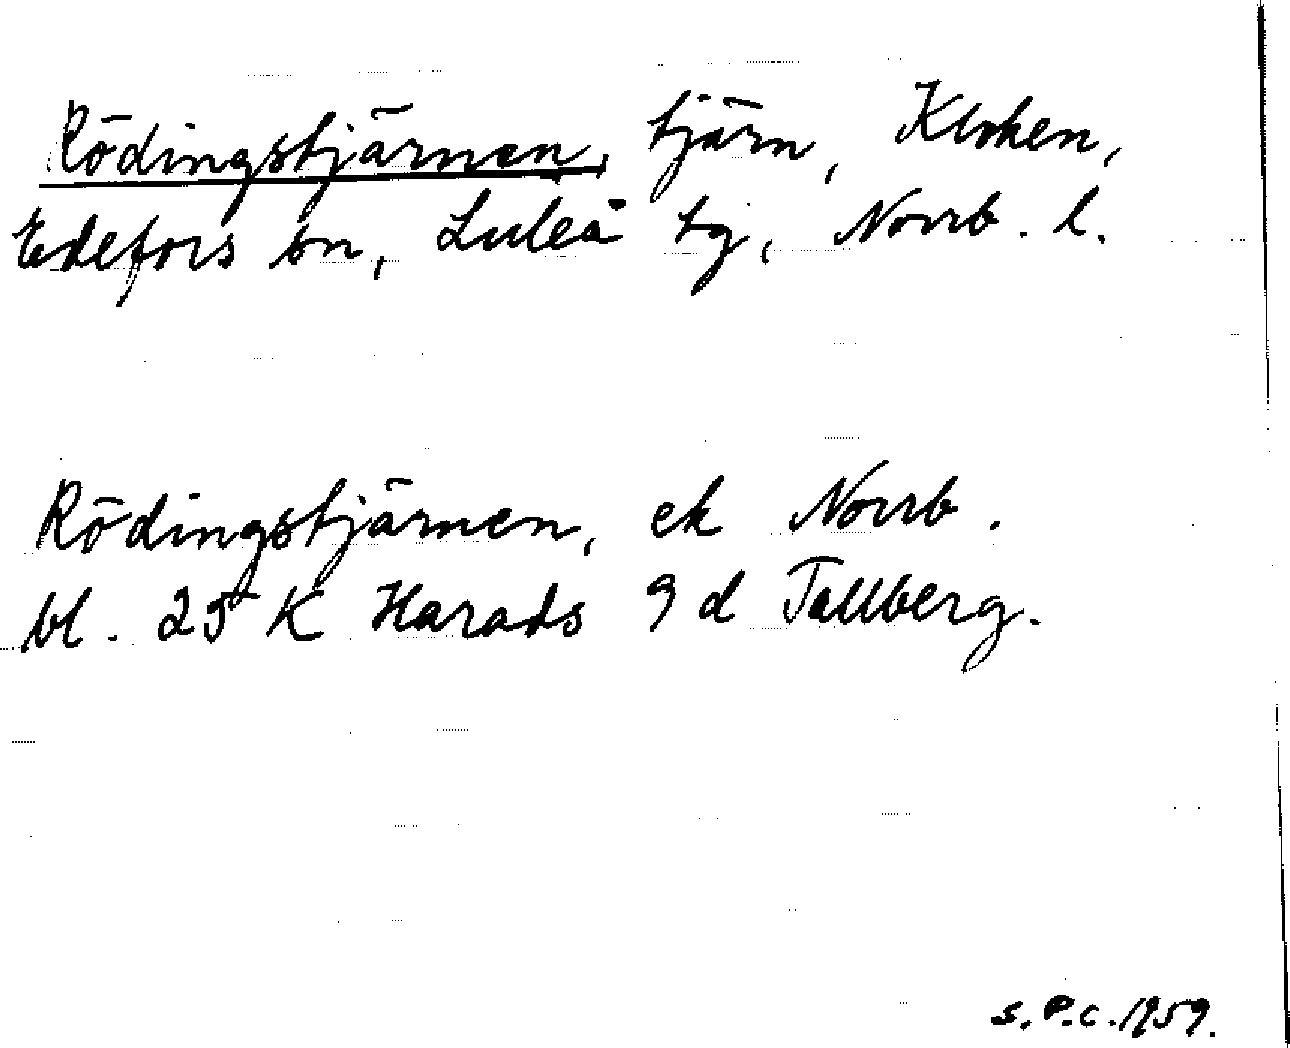 Rödingstjärnen, tjärn, Klusken,
Edefors sn, Luleå tg, Norrb. l.
Rödingstjärnen, ek Norrb.
bl. 25 K Harads 9 d Tallberg.
S.P.C. 1959.